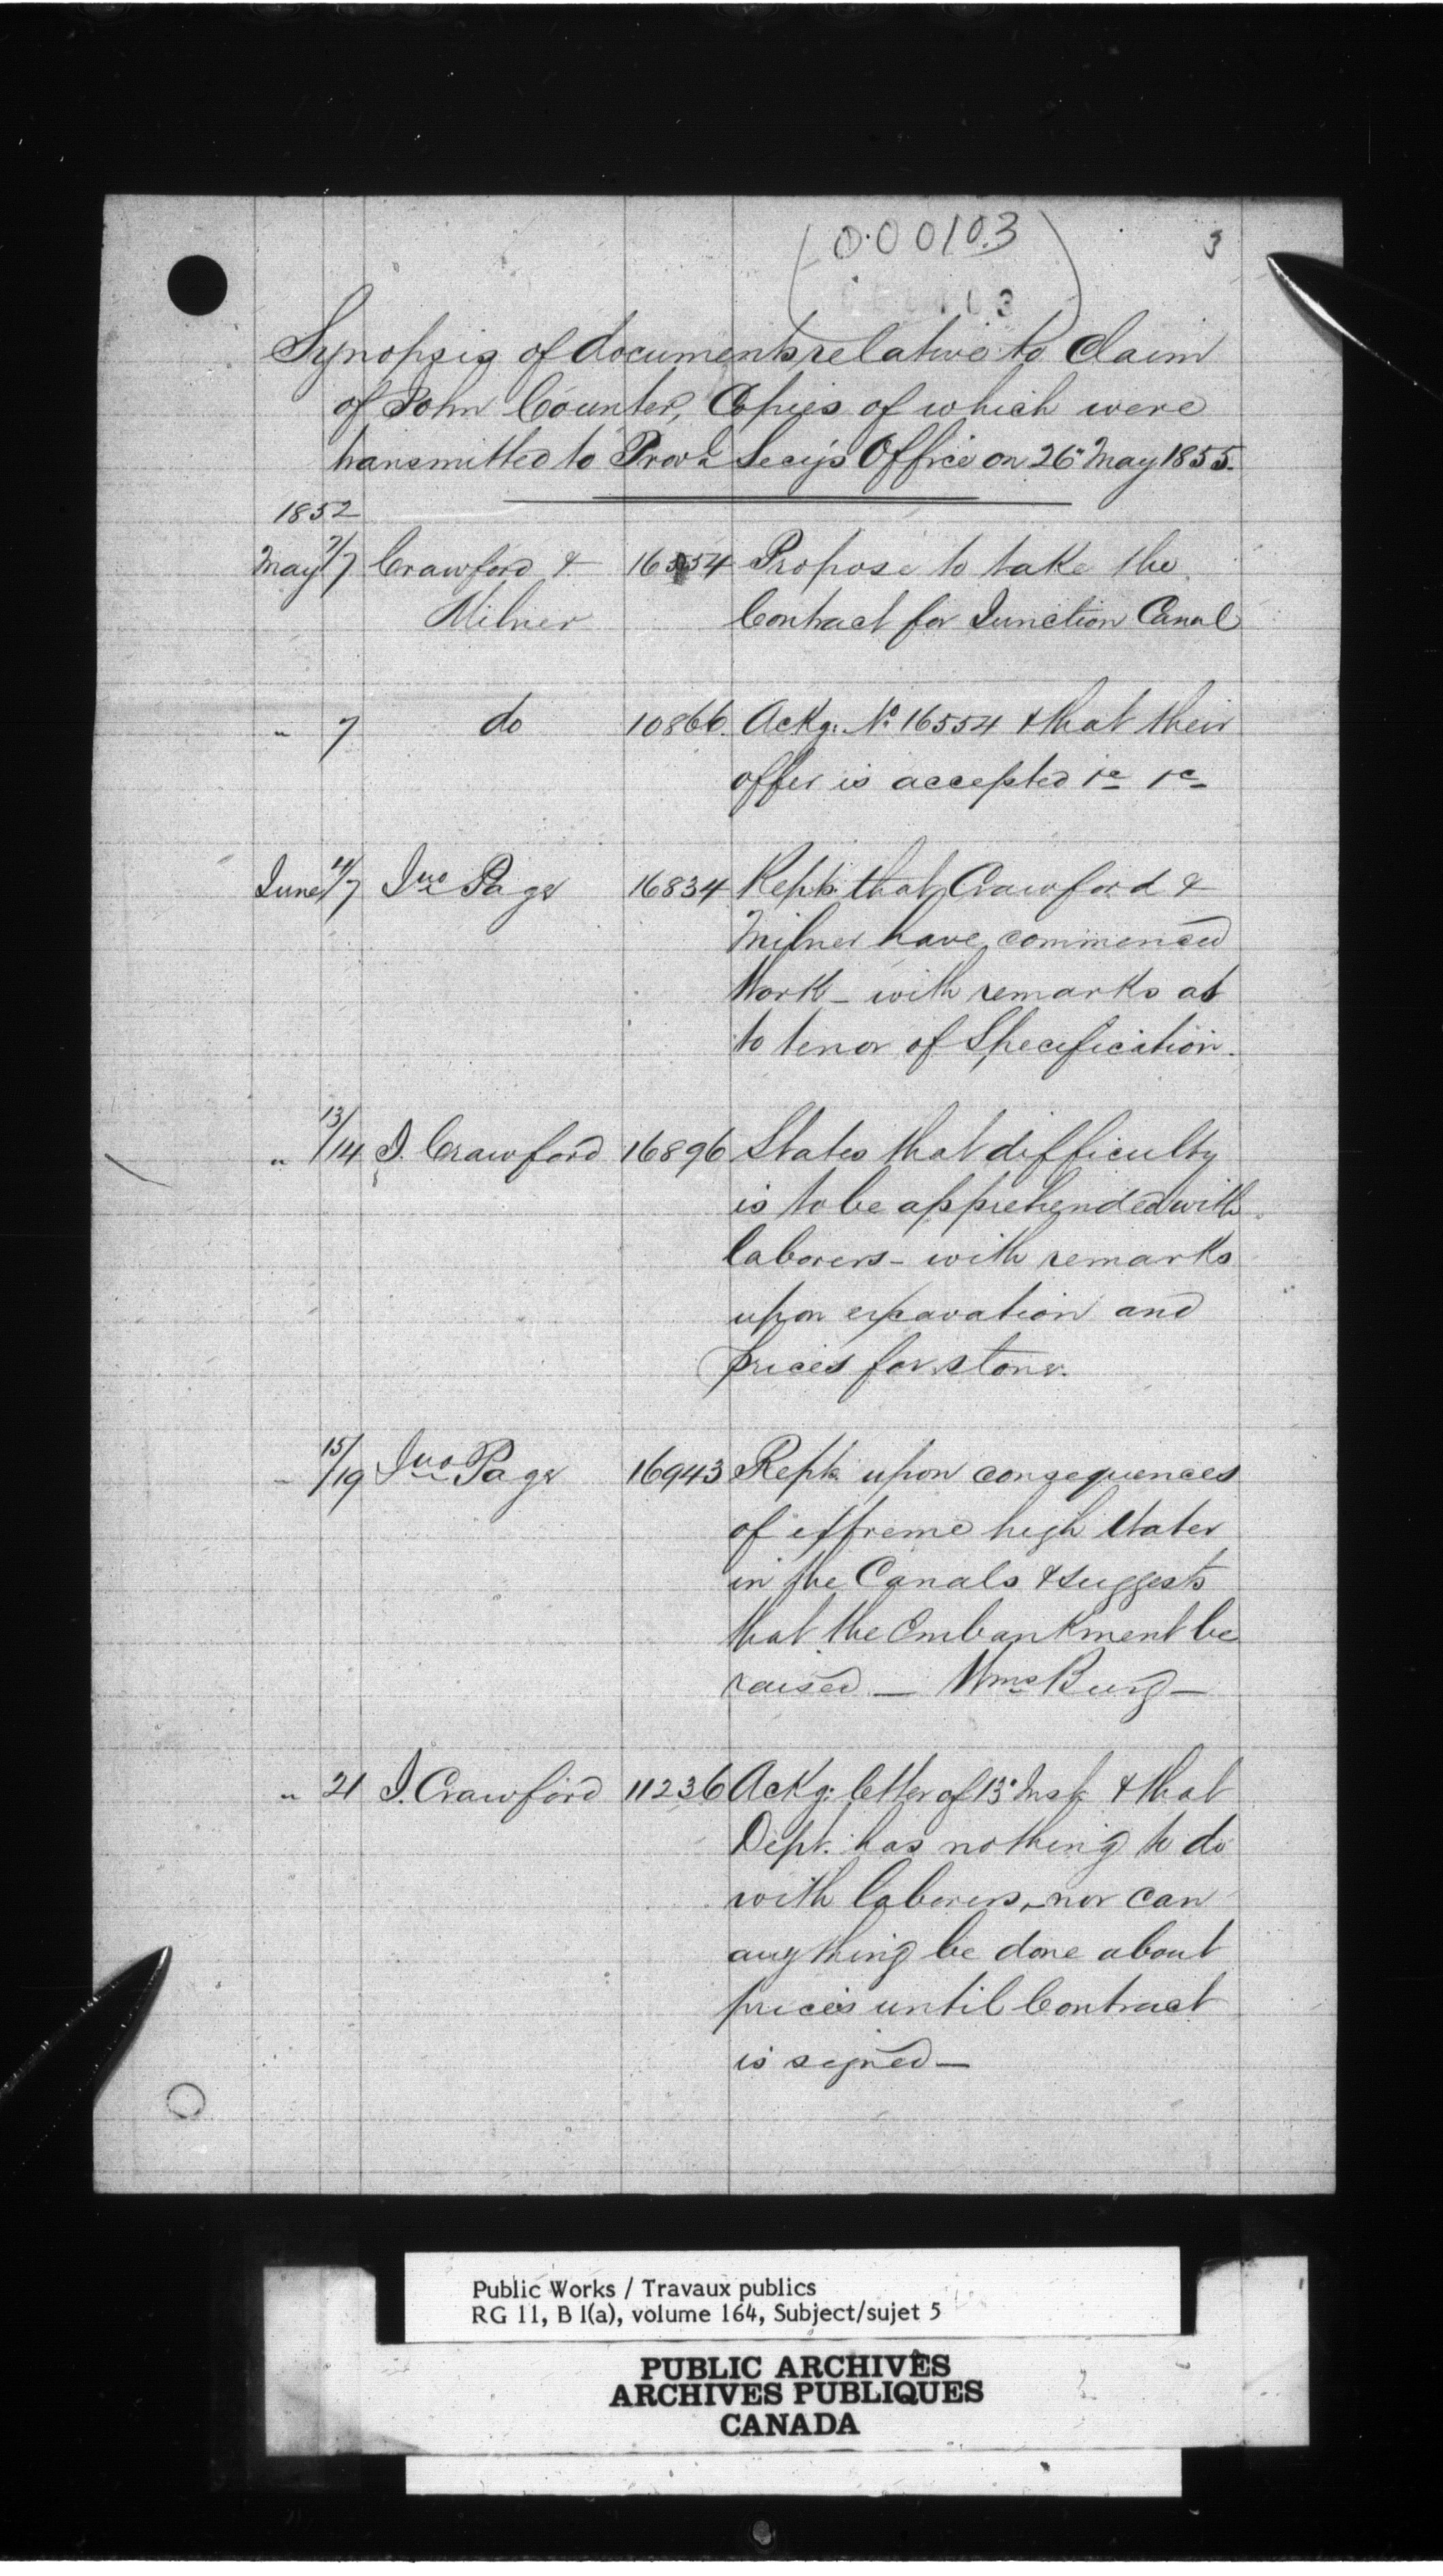 000103
3
Synopsis of documents relative to Claim
of John Counter, Copies of which were
transmitted to Prov.l Secy's Office on 26 May 1855.
1852
May 7/7 Crawford & 16554 Propose to take the
Milner Contract for Junction Canal
" 7 do 10866 Ackg. No 16554 & that their
offer is accepted &c &c
June 4/7 Jno Page 16834 Repts. that Crawford &
Milner have commenced
Work - with remarks as
to tenor of Specification.
" 13/14 J. Crawford 16896 States that difficulty
is to be apprehended with
laborers - with remarks
upon excavation and
prices for stone.
" 15/19 Jno Page 16943 Repts. upon consequences
of extreme high Water
in the Canals & suggests
that the Embankment be
raised — Wmsburg —
" 21 J. Crawford 11236 Ackg. letter of 13 Inst. & that
Dept. has nothing to do
with laborers, nor can
anything be done about
prices until Contract
is signed —
Public Works / Travaux publics
RG 11, B 1(a), volume 164, Subject/sujet 5
PUBLIC ARCHIVES
ARCHIVES PUBLIQUES
CANADA